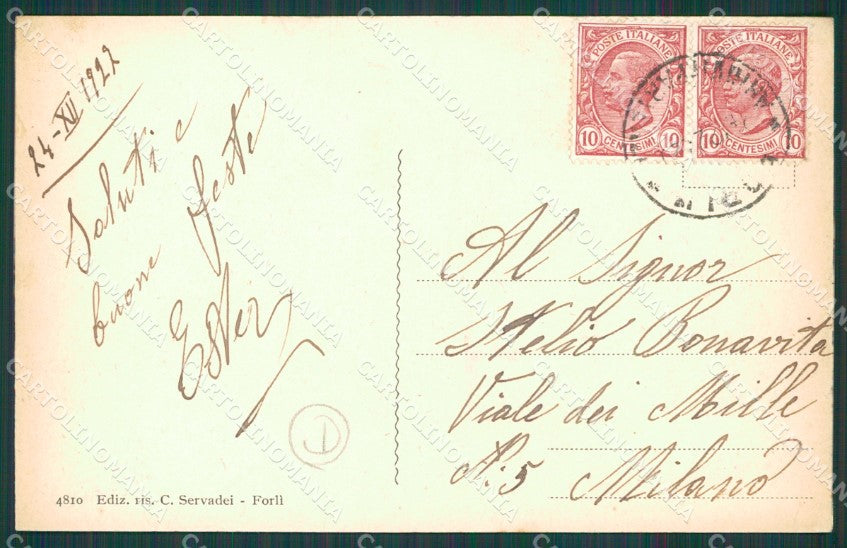 24-XII 1922
Saluti e
buone feste
Ester
4810 Ediz. ris. C. Servadei - Forlì
POSTE ITALIANE
10 CENTESIMI 10
POSTE ITALIANE
10 CENTESIMI 10
Al Signor
Stelio Bonavita
Viale dei Mille
N: 5 Milano
CARTOLINOMANIA